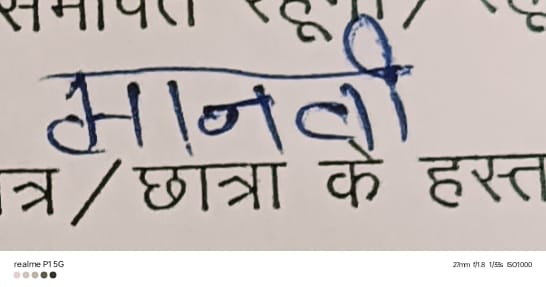 समर्पित रहूँगा/
मानवी
त्र / छात्रा के हस्त
realme P1 5G
27mm f/1.8 1/33s ISO1000